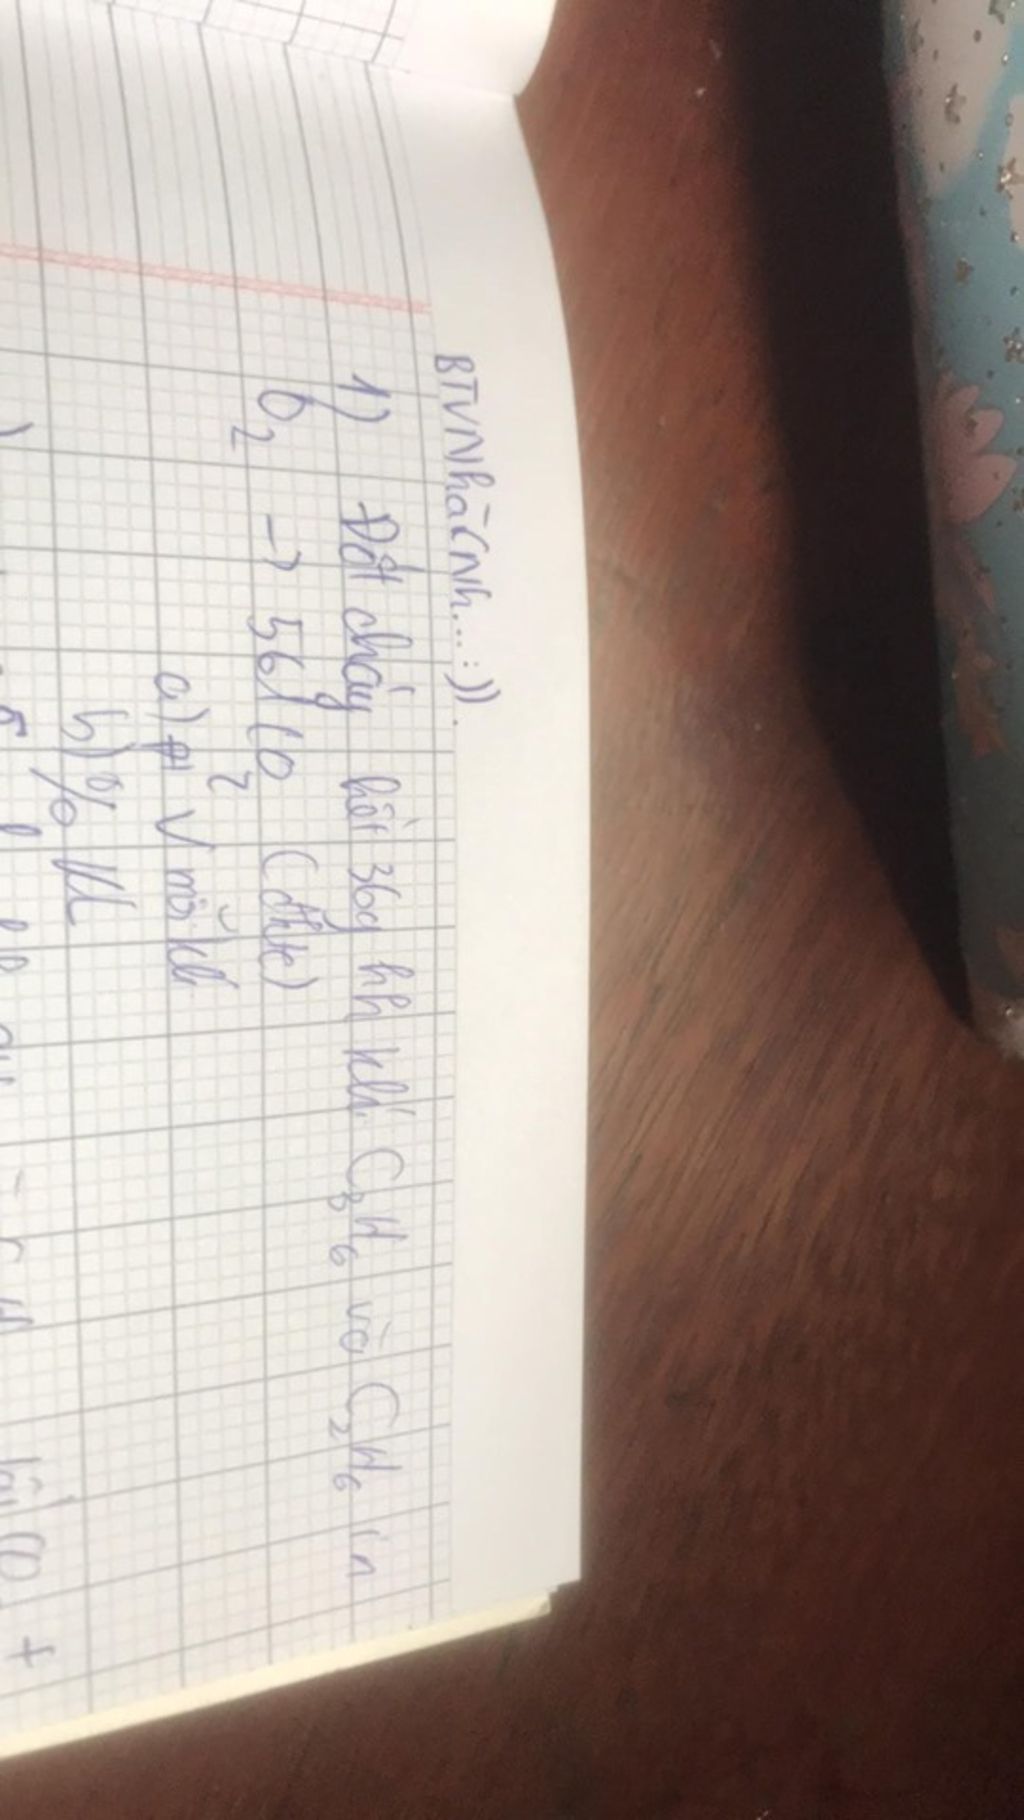 BTVNhà(Nh...:)).
1) Đốt cháy hết 36g hh khí C₃H₆ và C₂H₆ in
O₂ → 56l CO₂ (đktc)
a) V mỗi khí
b) %